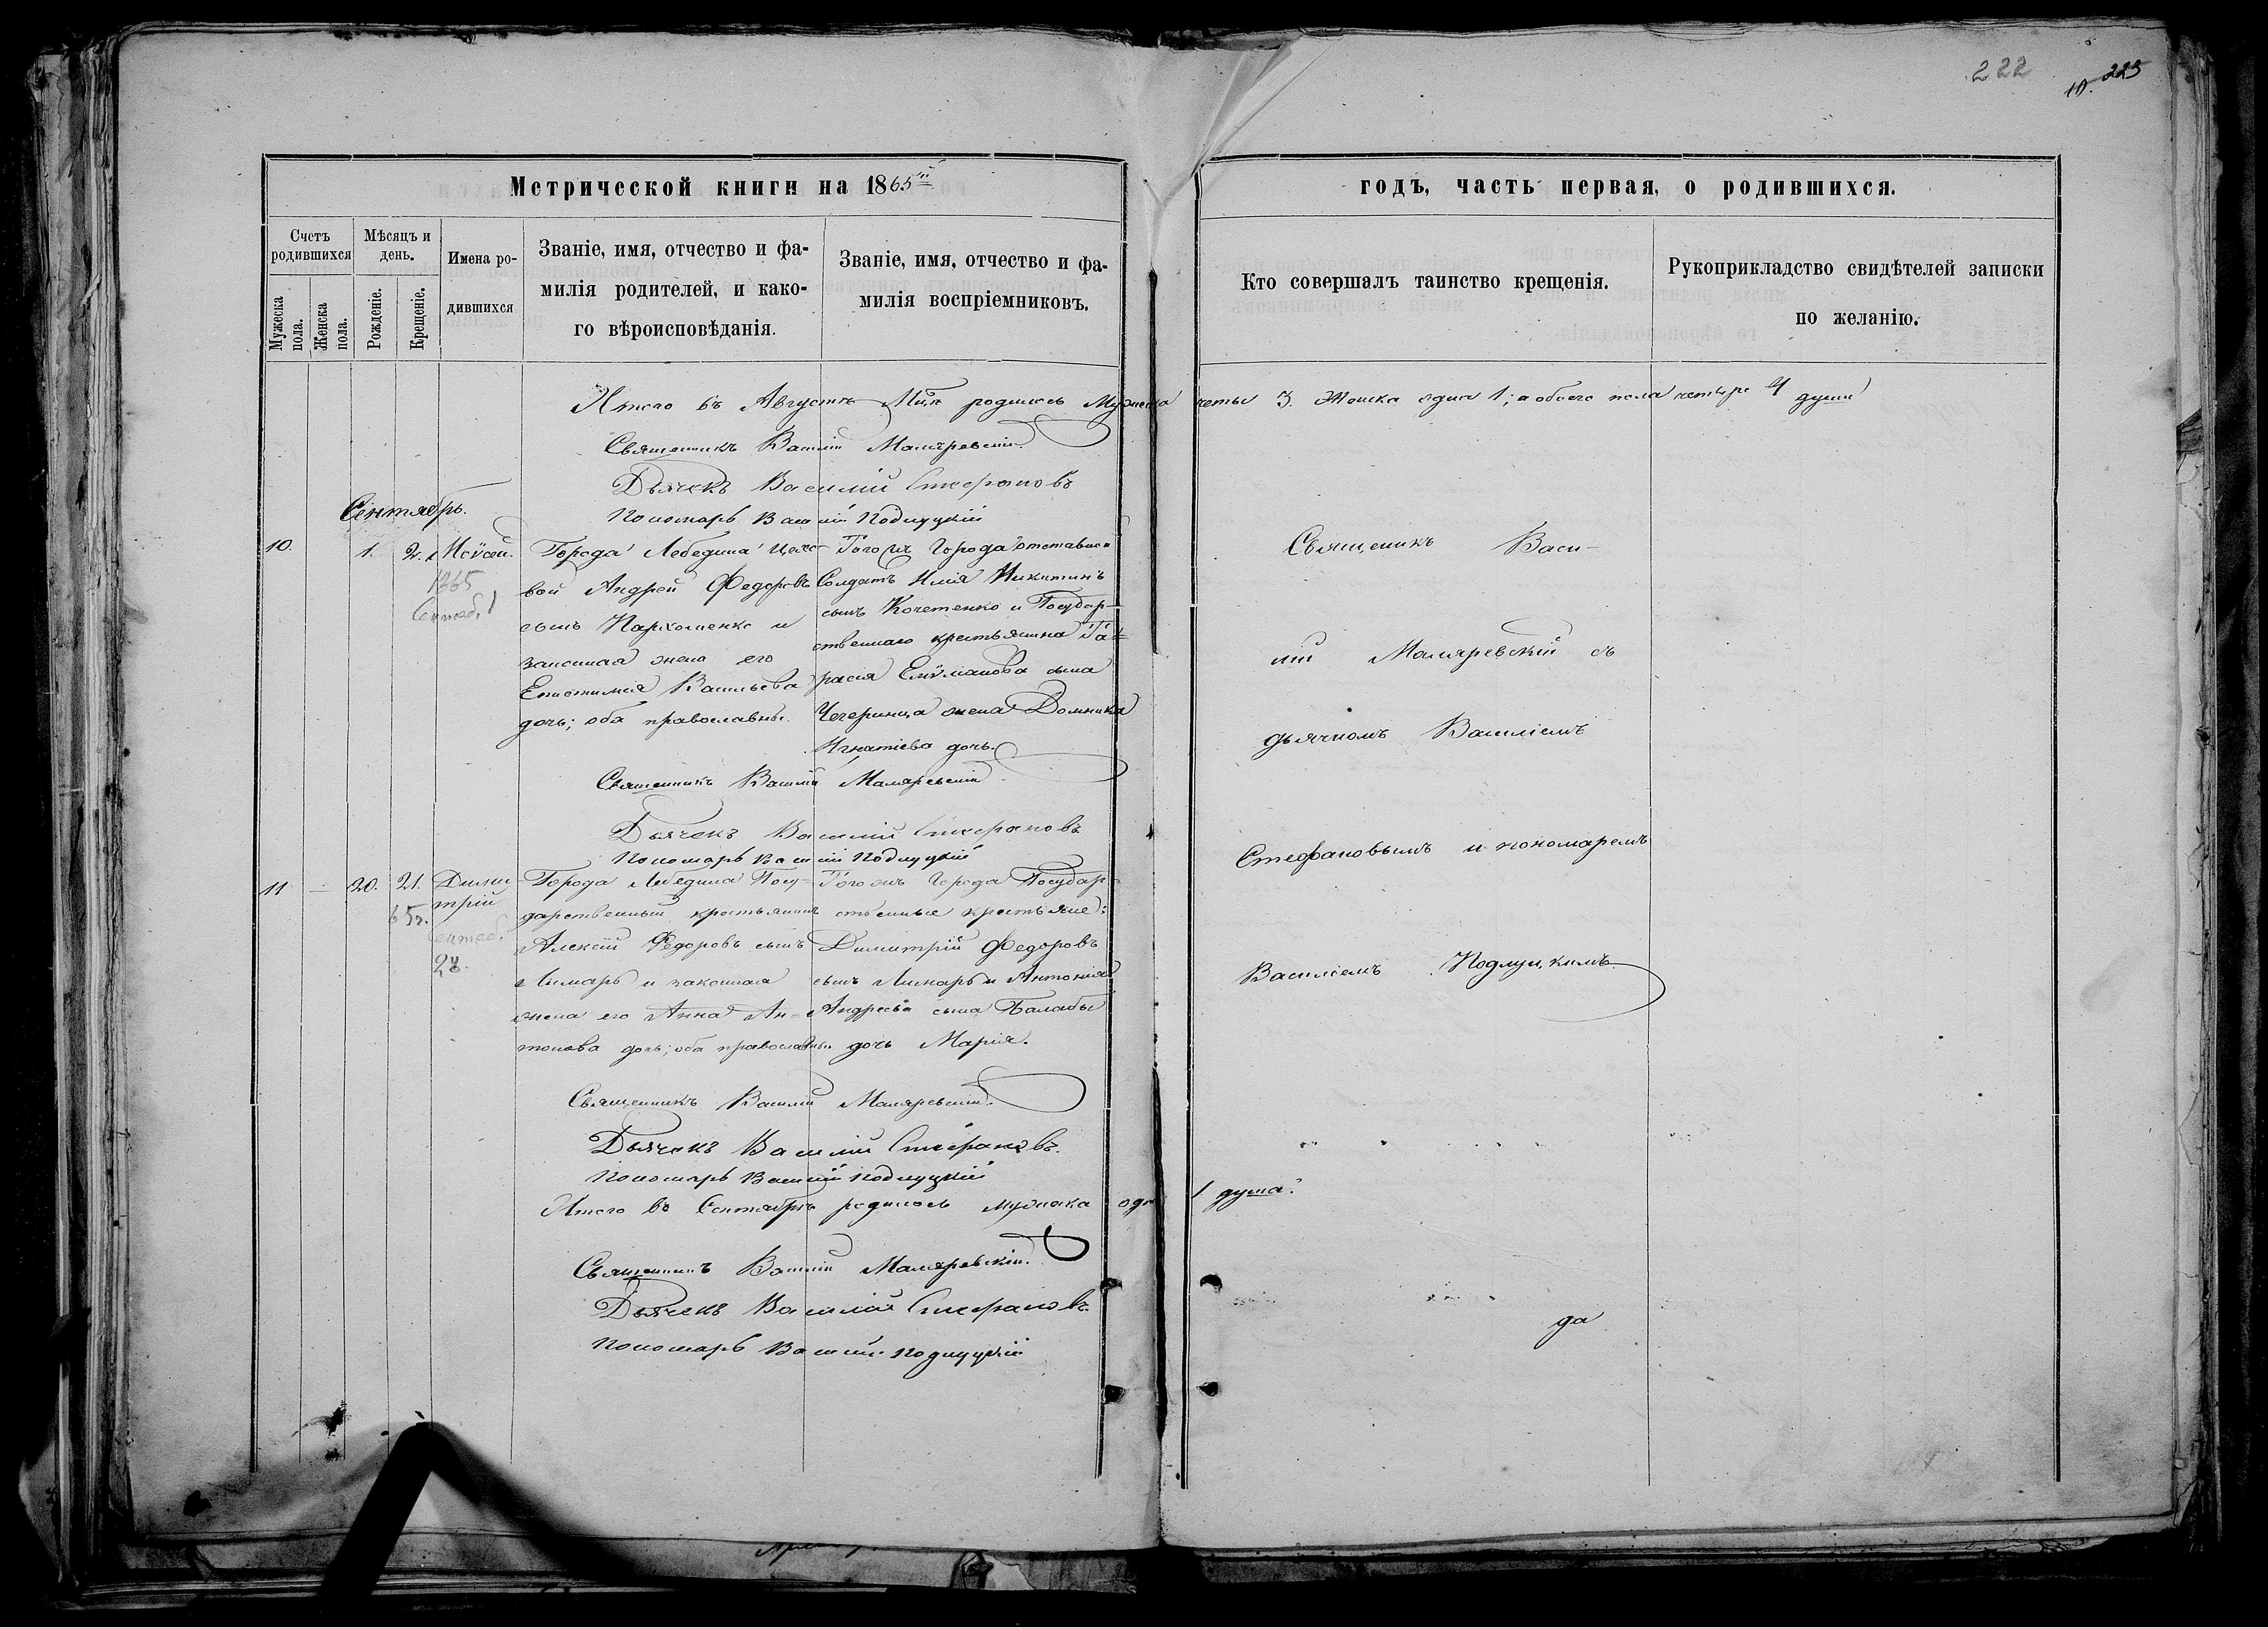 222
225
Метрической книги на 1865й
годъ, часть первая, о родившихся.
Счетъ родившихся
Мужеска пола.
Женска пола.
Мѣсяцъ и день.
Рожденіе.
Крещеніе.
Имена ро-
дившихся
Званіе, имя, отчество и фа-
милія родителей, и како-
го вѣроисповѣданія.
Званіе, имя, отчество и фа-
милія воспріемниковъ.
Кто совершалъ таинство крещенія.
Рукоприкладство свидѣтелей записки
по желанію.
Итого въ Августѣ родилось Мужеска 3. Женска одна 1; а обоего пола четыре 4 души
Священникъ Василій Маляревскій
Дьячекъ Василій Стефановъ
Пономарь Василій Подлуцкій
Сентябрь.
10.
1.
2.
Моѵсей.
1865
Сентяб. 1
Города Лебедина
вой Андрей Федоровъ
сынъ Пархоменко и
законная жена его
Епистимія Васильева
дочь; оба православные.
Тогожъ Города отставной
Солдатъ Илія Никитинъ
сынъ Кочетенко и Государ-
ственнаго крестьянина Та-
расія сына
Чегеринца жена Домника
Игнатіева дочь.
Священникъ Васи-
лій Маляревскій съ
дьячкомъ Василіемъ
Стефановымъ и пономаремъ
Василіемъ Подлуцкимъ.
Священникъ Василій Маляревскій
Дьячекъ Василій Стефановъ
Пономарь Василій Подлуцкій
11
–
20.
21.
Дими
трій
65 г.
Сентяб.
Города Лебедина Госу-
дарственный крестьянинъ
Алексій Федоровъ сынъ
Лимарь и законная
жена его Анна Ан-
тонова дочь; оба православные
Тогожъ Города Государ-
ственные крестьяне:
Димитрій Федоровъ
сынъ Лимарь и Антонія
Андреева сына Балабы
дочь Марія.
Священникъ Василій Маляревскій.
Дьячекъ Василій Стефановъ.
Пономарь Василій Подлуцкій
Итого въ Сентябрѣ родилось мужеска 1 душа.
Священникъ Василій Маляревскій.
Дьячекъ Василій Стефановъ.
Пономарь Василій Подлуцкій
да